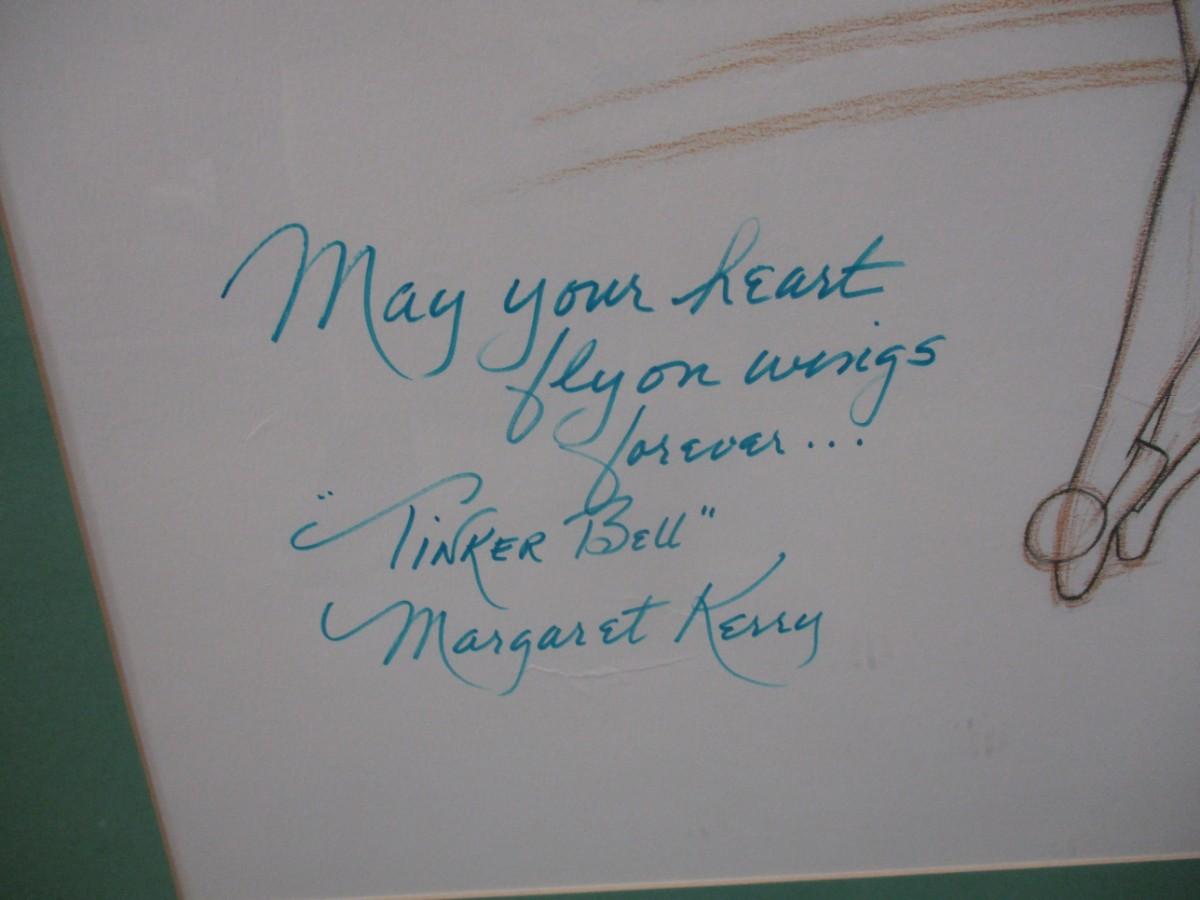 May your heart
fly on wings
forever...
"Tinker Bell"
Margaret Kerry